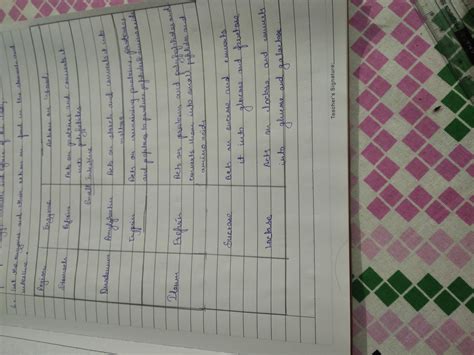 2. List the enzymes and their action on food in the stomach and intestine.
Region Enzyme Action on food
Stomach Pepsin Acts on proteins and converts it into polypeptides
Small Intestine
Duodenum Amylopsin Acts on starch and converts it into maltose
Trypsin Acts on remaining proteins, proteoses and peptones to produce peptides & amino acids
Ileum Erepsin Acts on peptones and polypeptides and converts them into small peptides and amino acids
Sucrase Acts on sucrose and converts it into glucose and fructose
Lactase Acts on lactose and converts into glucose and galactose
Teacher's Signature